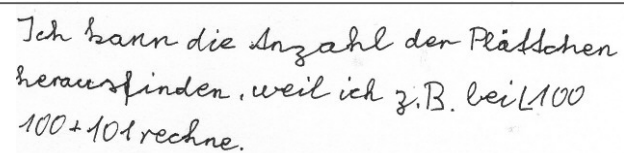 Ich kann die Anzahl der Plättchen
herausfinden, weil ich z.B. bei L100
100+101 rechne.